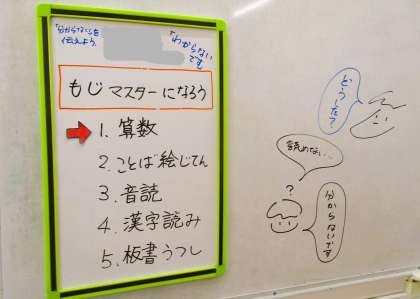 「分からない」を
伝えよう。
「わからない
です」
もじマスターになろう
1. 算数
2. ことば絵じてん
3. 音読
4. 漢字読み
5. 板書うつし
どうした？
読めない…
?
分からないです